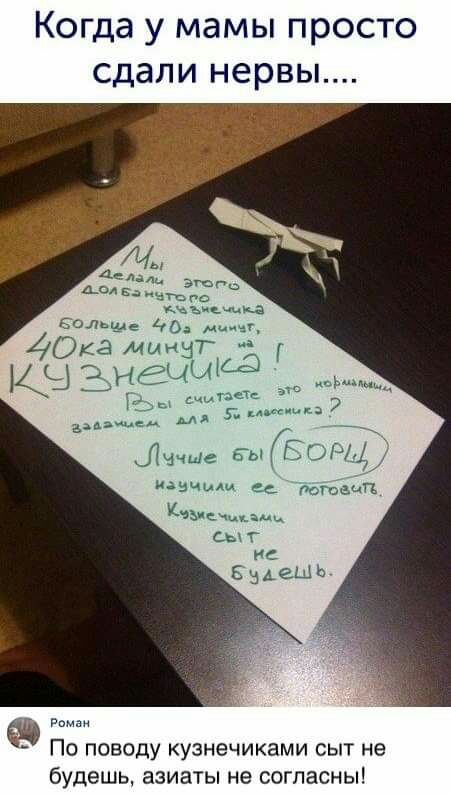 Когда у мамы просто
сдали нервы....
Мы
делали этого
долбанутого
кузнечика
больше 40а минут,
40ка минут на
КУЗНЕЧИКА!
Вы считаете это нормальным
заданием для 5и классника?
Лучше бы БОРЩ
научили ее готовить.
Кузнечиками
сыт
не
будешь.
Роман
По поводу кузнечиками сыт не
будешь, азиаты не согласны!